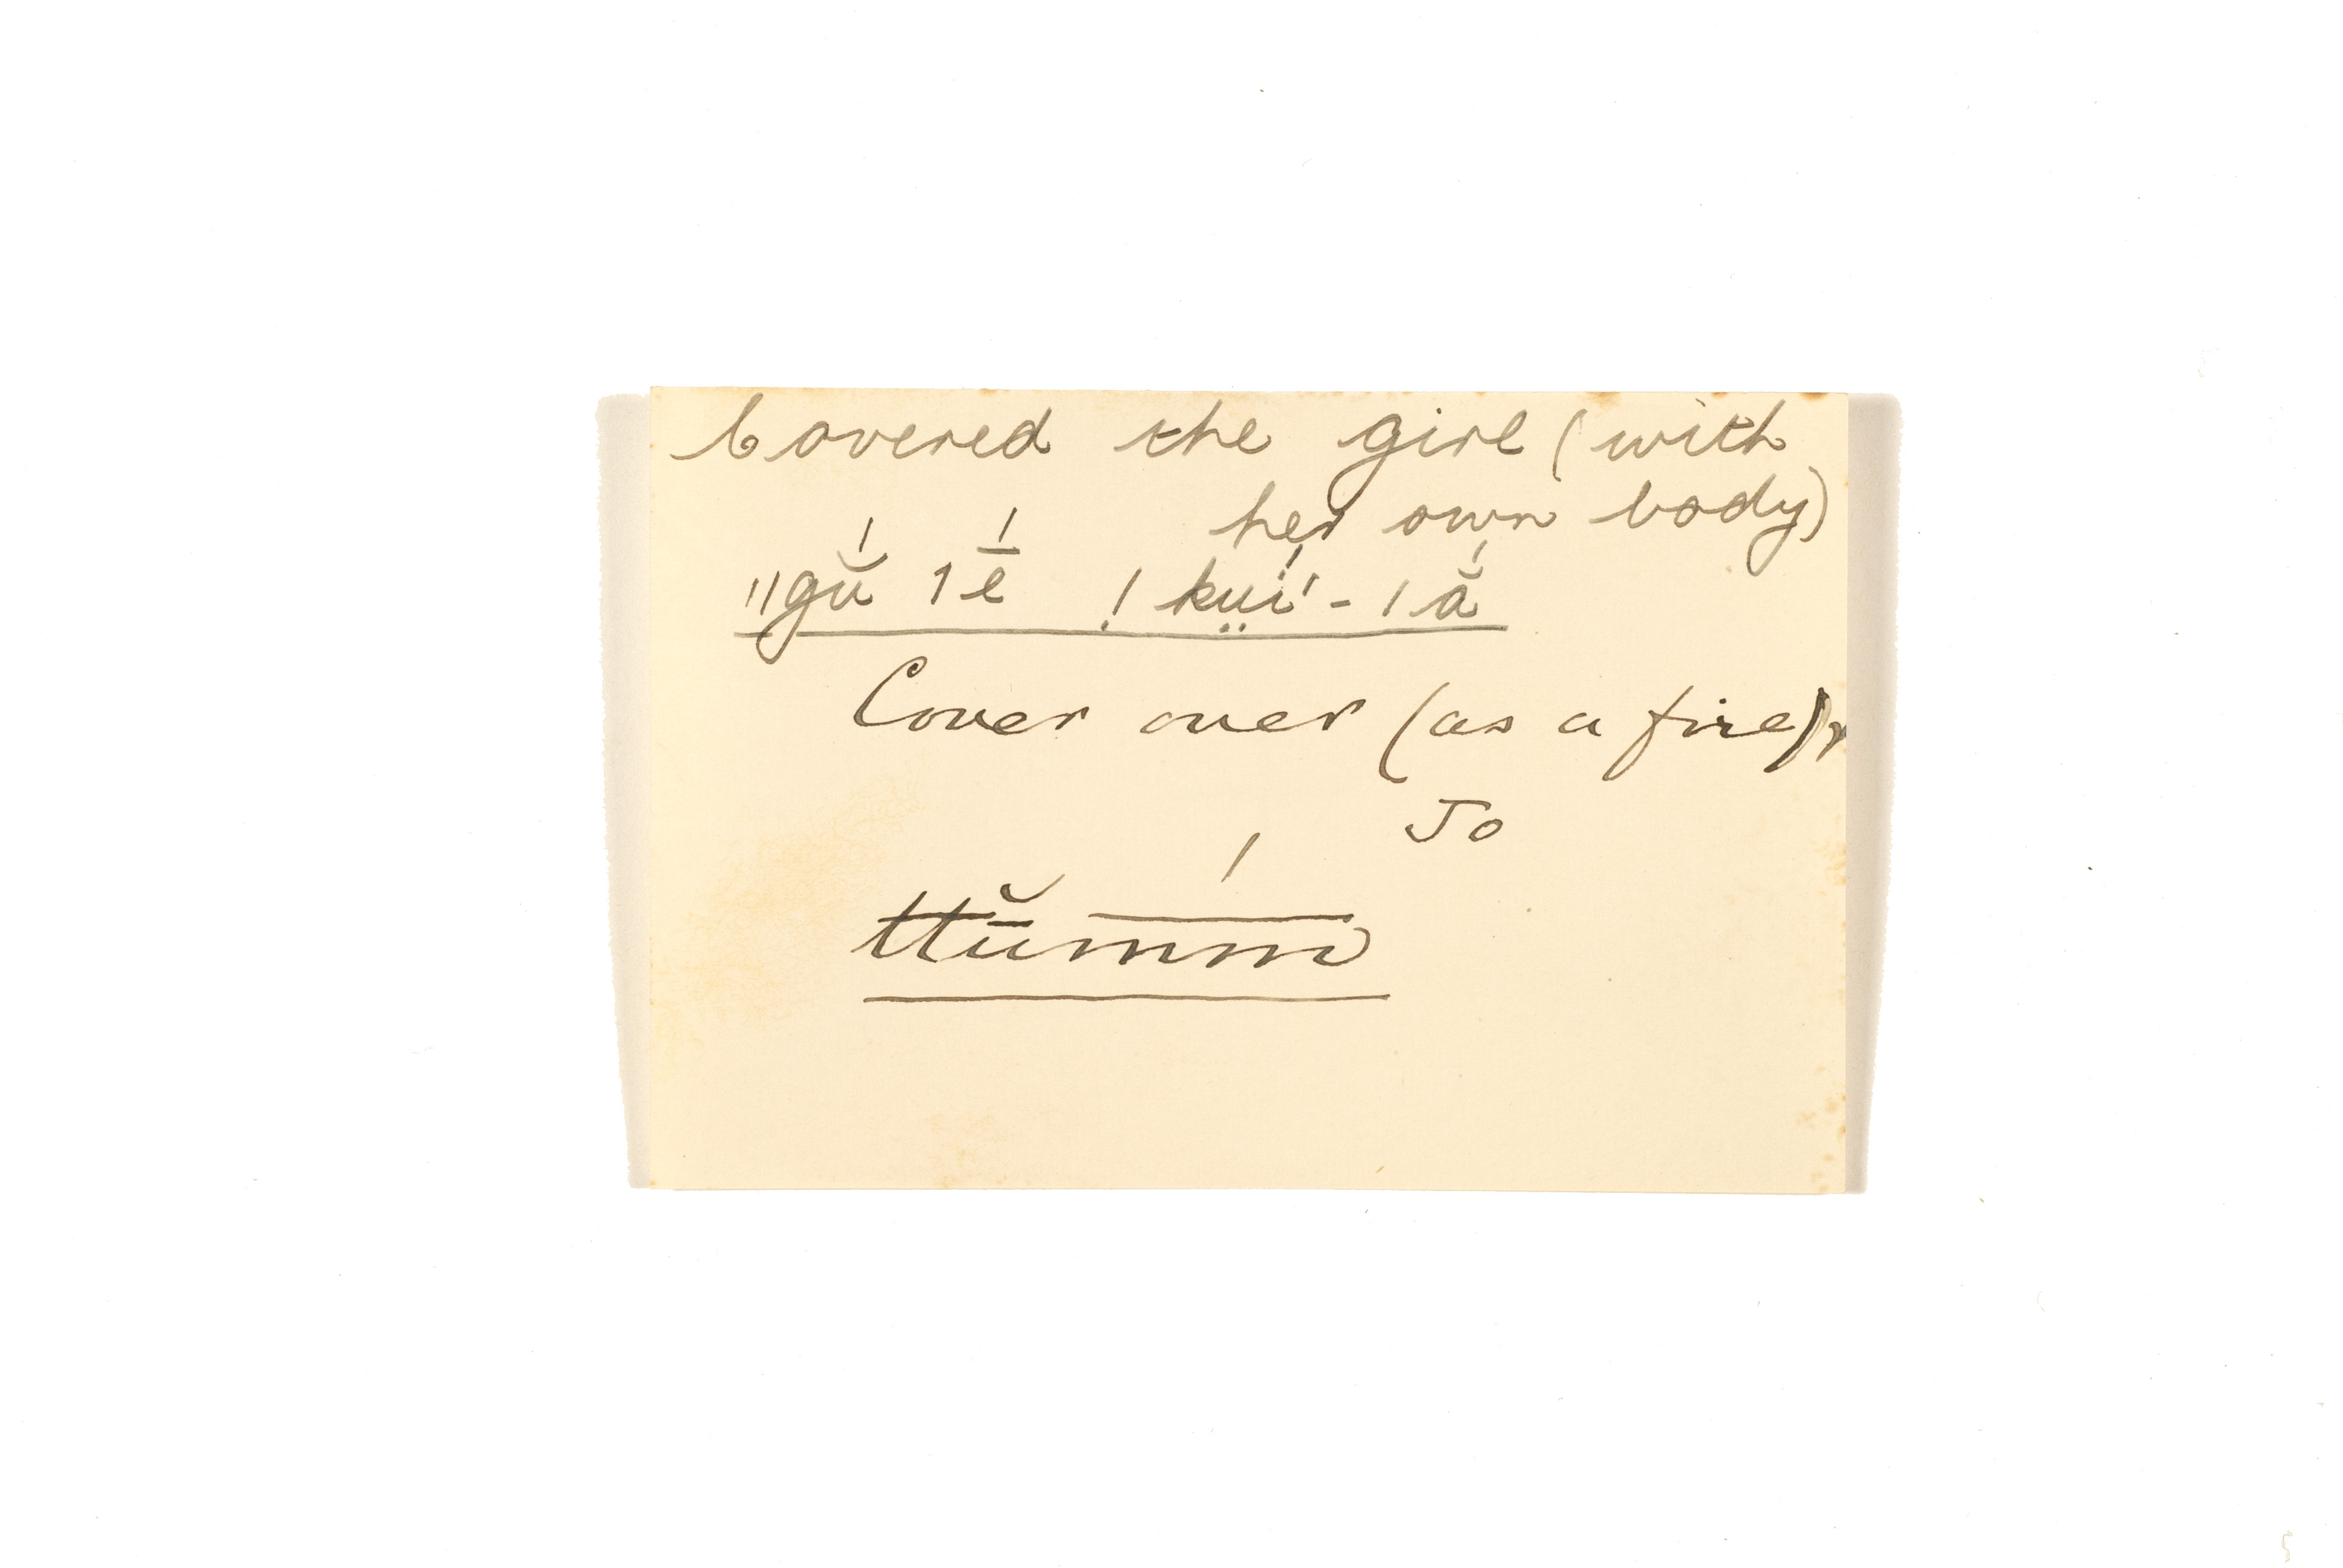 Covered the girl (with
her own body)
ǁgŭ́ 1 ḗ !k̤uí-ǀắ
Cover over (as a fire),
To
ttŭ̄mm̄́